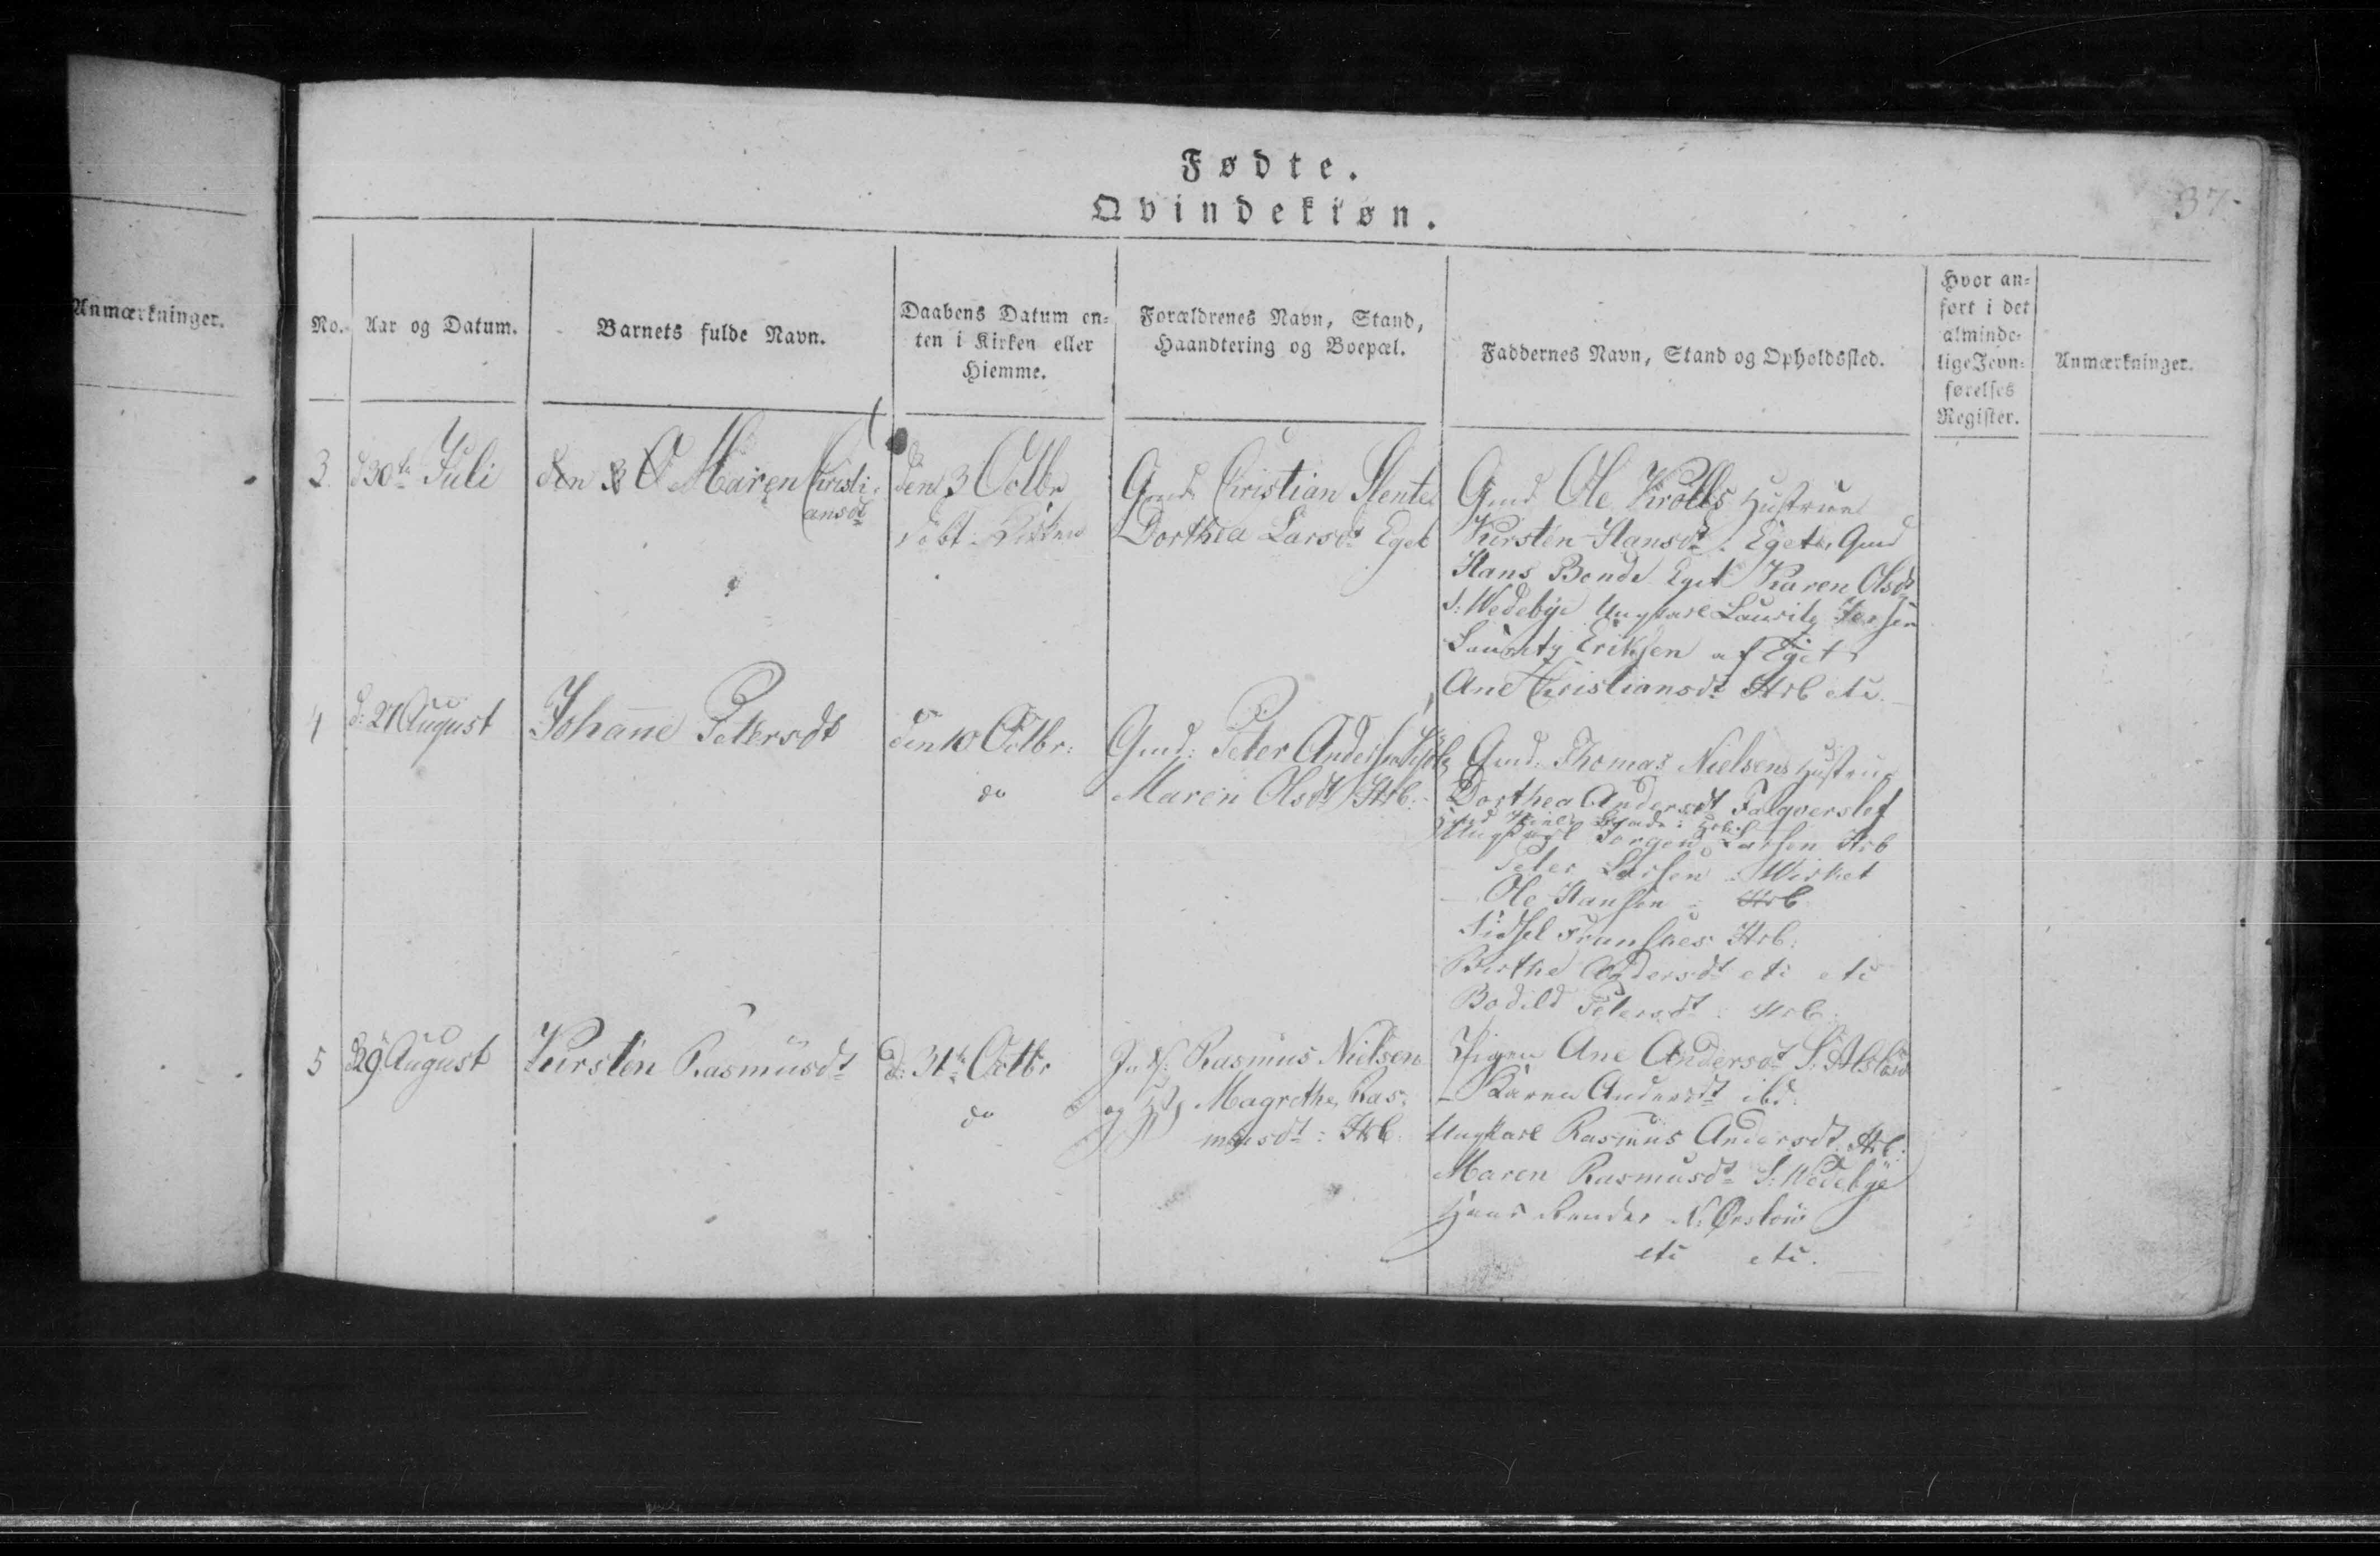 Anmærkninger.
Fødte.
Qvindekiøn.
37.
No.
Aar og Datum.
Barnets fulde Navn.
Daabens Datum en-
ten i Kirken eller
Hiemme.
Forældrenes Navn, Stand,
Haandtering og Boepæl.
Faddernes Navn, Stand og Opholdssted.
Hvor an-
ført i det
alminde-
lige Jevn-
førelses
Register.
Anmærkninger.
3.
d 30te Juli
den 3 O Maren Christi-
ansdt
den 3 Octbr
døbt Kirken
Gmd. Christian Stente
Dorthea Larsdt Eget
Gmd Ole Krolls Hustrue
Kirsten Hansdt. Eget, Gmd
Hans Bonde Eget Karen Olsdt
S: Wedebye Ungkarl Lauritz
Lauritz Eriksen af Eget
Ane Christiansdt Hrb etc.
4
d: 27 August
Johanne Petersdt
den 10 Octbr:
do
Gmd: Peter Andersen
Maren Olsdt Hrb:
Gmd: Thomas Nielsens Hustrue
Dorthea Andersdt Falqverslef
Ungkarl Jørgen Larsen Hrb
Peter Larsen Wirket
Ole Hansen - Hrb
Sidsel Hrb:
Birthe Andersdt etc etc
Bodild Petersdt: Hrb:
5
d 29 August
Kirsten Rasmusdt
d: 31te Octbr
do
Rasmus Nielsen
og Magrethe Ras-
musdt: Hrb.
Pigen Ane Andersdt S: Alslev
- Karen Andersdt ibd:
Ungkarl Rasmus Andersdt Hrb:
Maren Rasmusdt S: Wedebye
Hans N: Ørslew
etc etc.